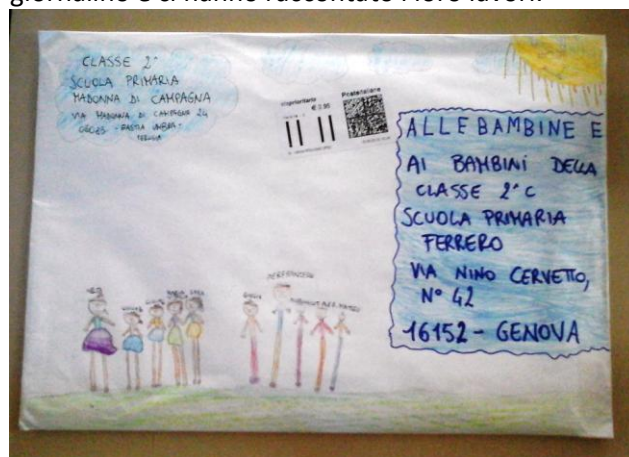 giornalino e ci hanno raccontato i loro lavori.
CLASSE 2^
SCUOLA PRIMARIA
MADONNA DI CAMPAGNA
VIA MADONNA DI CAMPAGNA 24
PERUGIA
Posteitaliane
€ 0.95
ALLE BAMBINE E
AI BAMBINI DELLA
CLASSE 2^ C
SCUOLA PRIMARIA
FERRERO
VIA NINO CERVETTO,
N° 42
16152 - GENOVA